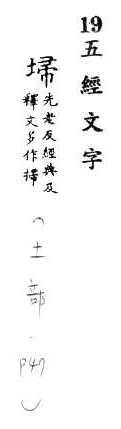 19五經文字
埽先老反經典及
釋文多作掃
(土部.P47)